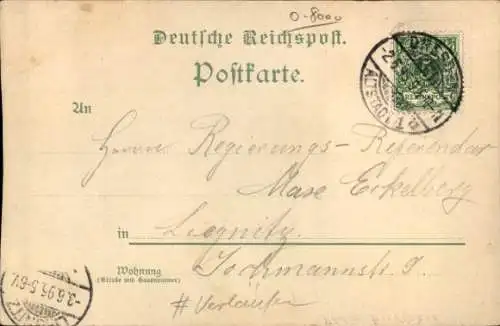 0-8000
Deutsche Reichspost.
Postkarte.
An
Herrn Regierungs-Referendar
Max Eckelberg
in Liegnitz
Wohnung
(Straße und Hausnummer)
Jochmannstr. 9.
DRESDEN
ALTSTADT 1
-3.6.95.5-6V.
LIEGNITZ